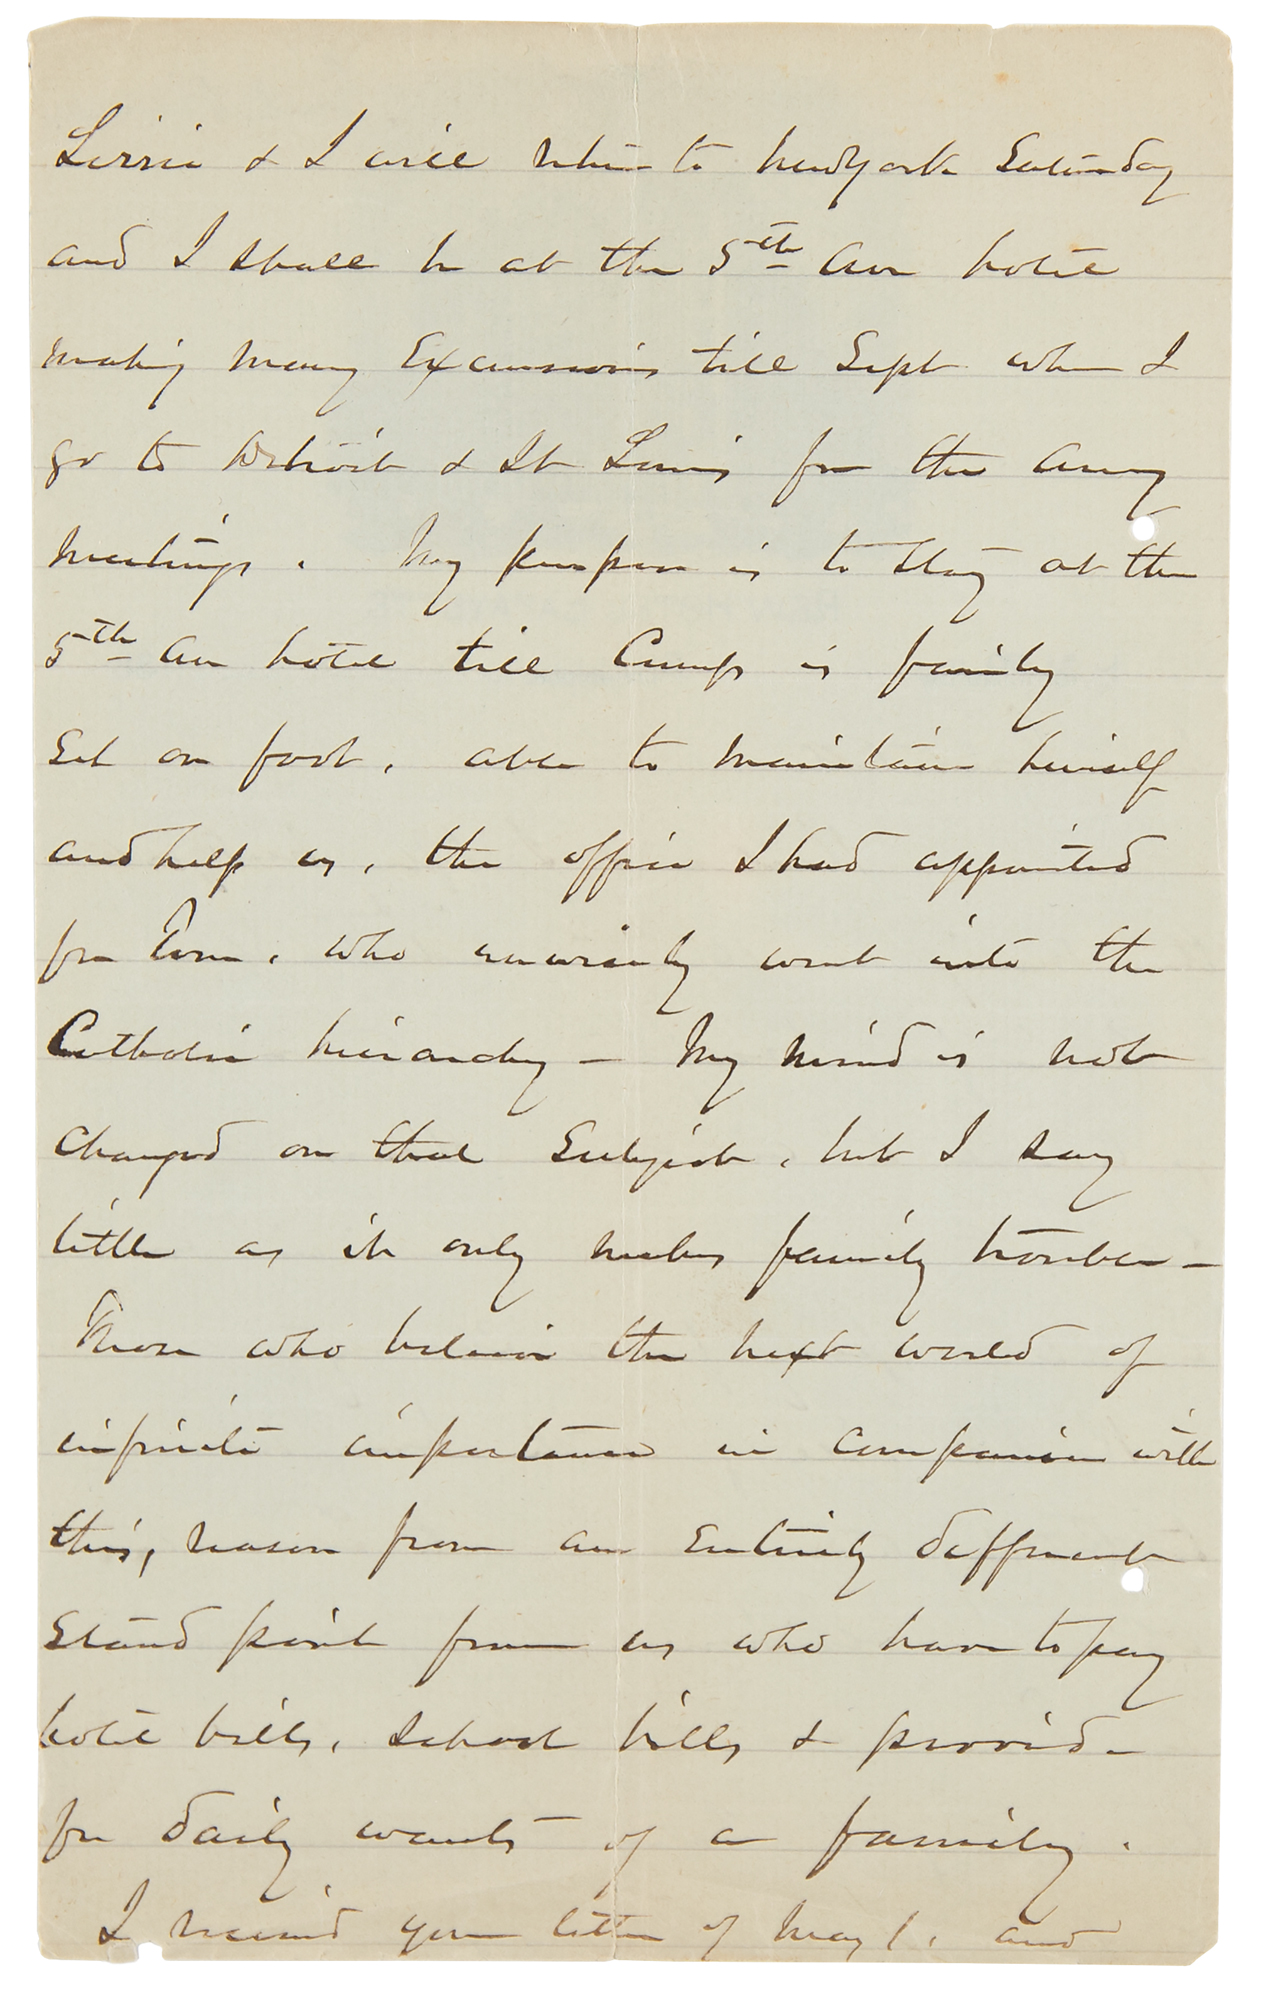 Lizzie & I will return to New York Saturday
and I shall be at the 5th Ave hotel
making many Excursions till Sept when I
go to Detroit & St Louis for the Army
meetings. My purpose is to stay at the
5th Ave hotel till Cump is fairly
set on foot, able to maintain himself
and help us, the office I had appointed
for Tom, who unwisely went into the
Catholic hierarchy — My mind is not
changed on that Subject, but I say
little as it only makes family trouble —
Those who believe the next world of
infinite importance in comparison with
this, reason from an Entirely different
Stand point from us who have to pay
hotel bills, school bills & provide
for daily wants of a family.
I received your letter of May 1, and